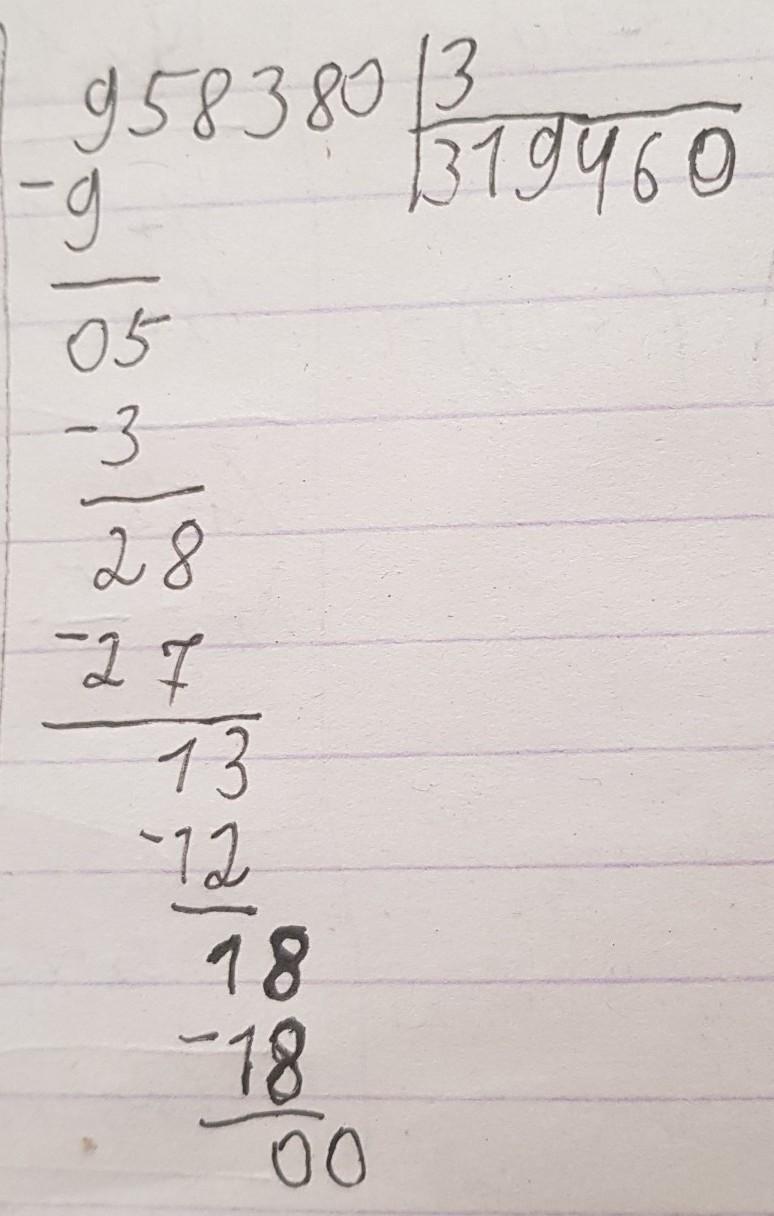 958380 3
-9 319460
05
-3
28
-27
13
-12
18
-18
00